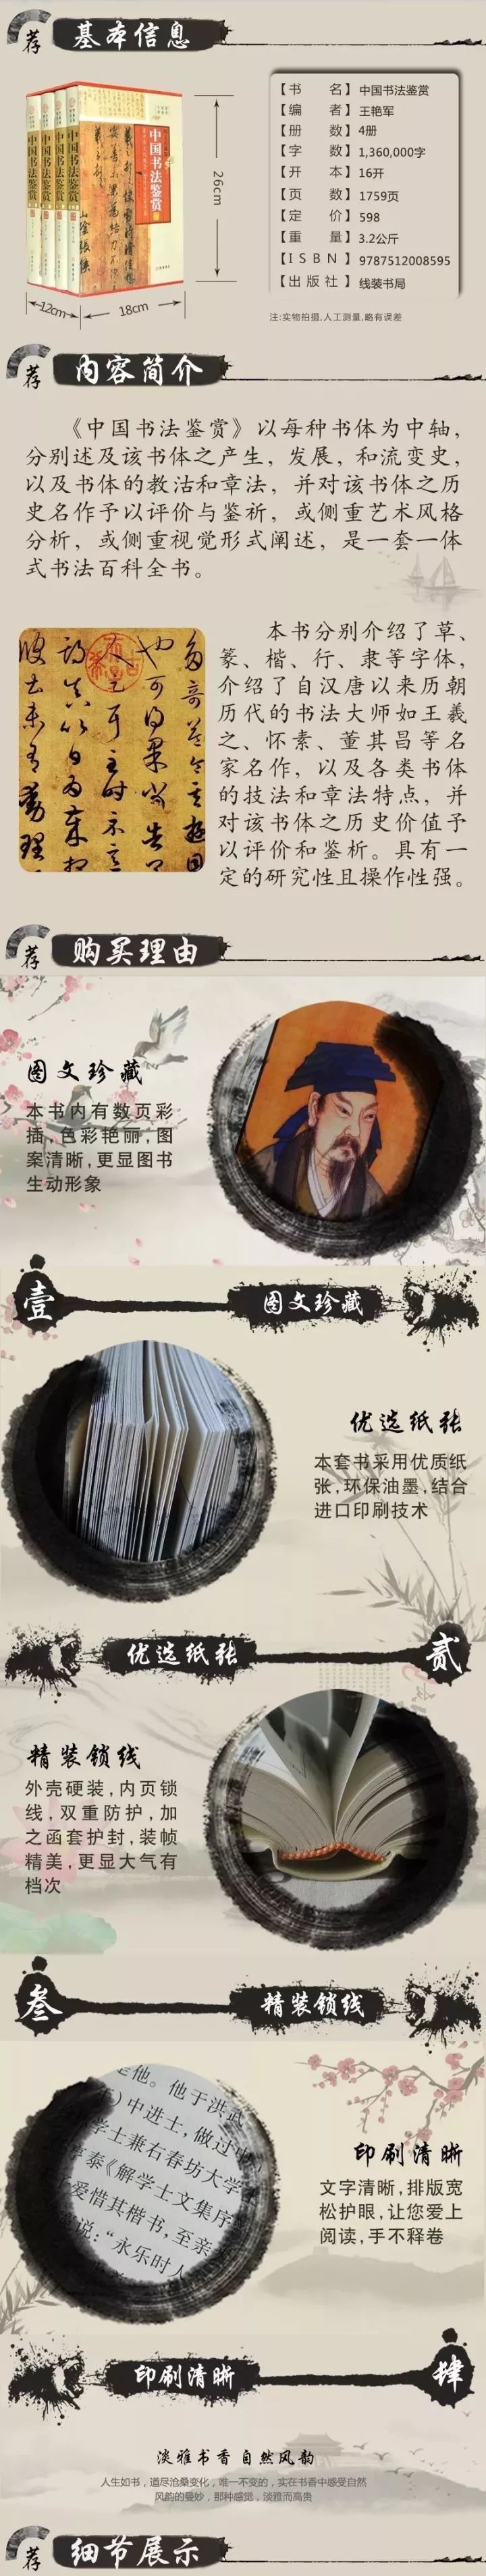 荐 基本信息
中国书法鉴赏
26cm
12cm
18cm
【书名】中国书法鉴赏
【编者】王艳军
【册数】4册
【字数】1,360,000字
【开本】16开
【页数】1759页
【定价】598
【重量】3.2公斤
【ISBN】9787512008595
【出版社】线装书局
注:实物拍摄,人工测量,略有误差
荐 内容简介
《中国书法鉴赏》以每种书体为中轴，
分别述及该书体之产生，发展，和流变史，
以及书体的教沽和章法，并对该书体之历
史名作予以评价与鉴祈，或侧重艺术风格
分析，或侧重视觉形式阐述，是一套一体
式书法百科全书。
本书分别介绍了草、
篆、楷、行、隶等字体，
介绍了自汉唐以来历朝
历代的书法大师如王羲
之、怀素、董其昌等名
家名作，以及各类书体
的技法和章法特点，并
对该书体之历史价值予
以评价和鉴析。具有一
定的研究性且操作性强。
荐 购买理由
图文珍藏
本书内有数页彩
插,色彩艳丽,图
案清晰,更显图书
生动形象
壹 图文珍藏
优选纸张
本套书采用优质纸
张,环保油墨,结合
进口印刷技术
优选纸张 贰
精装锁线
外壳硬装,内页锁
线,双重防护,加
之函套护封,装帧
精美,更显大气有
档次
叁 精装锁线
他。他于洪武
中进士，做过
学士兼右春坊大学
泰《解学士文集序
爱惜其楷书,至亲
说：“永乐时人
印刷清晰
文字清晰,排版宽
松护眼,让您爱上
阅读,手不释卷
印刷清晰 肆
淡雅书香 自然风韵
人生如书，道尽沧桑变化，唯一不变的，实在书香中感受自然
风韵的曼妙，那种感觉，淡雅而高贵
荐 细节展示